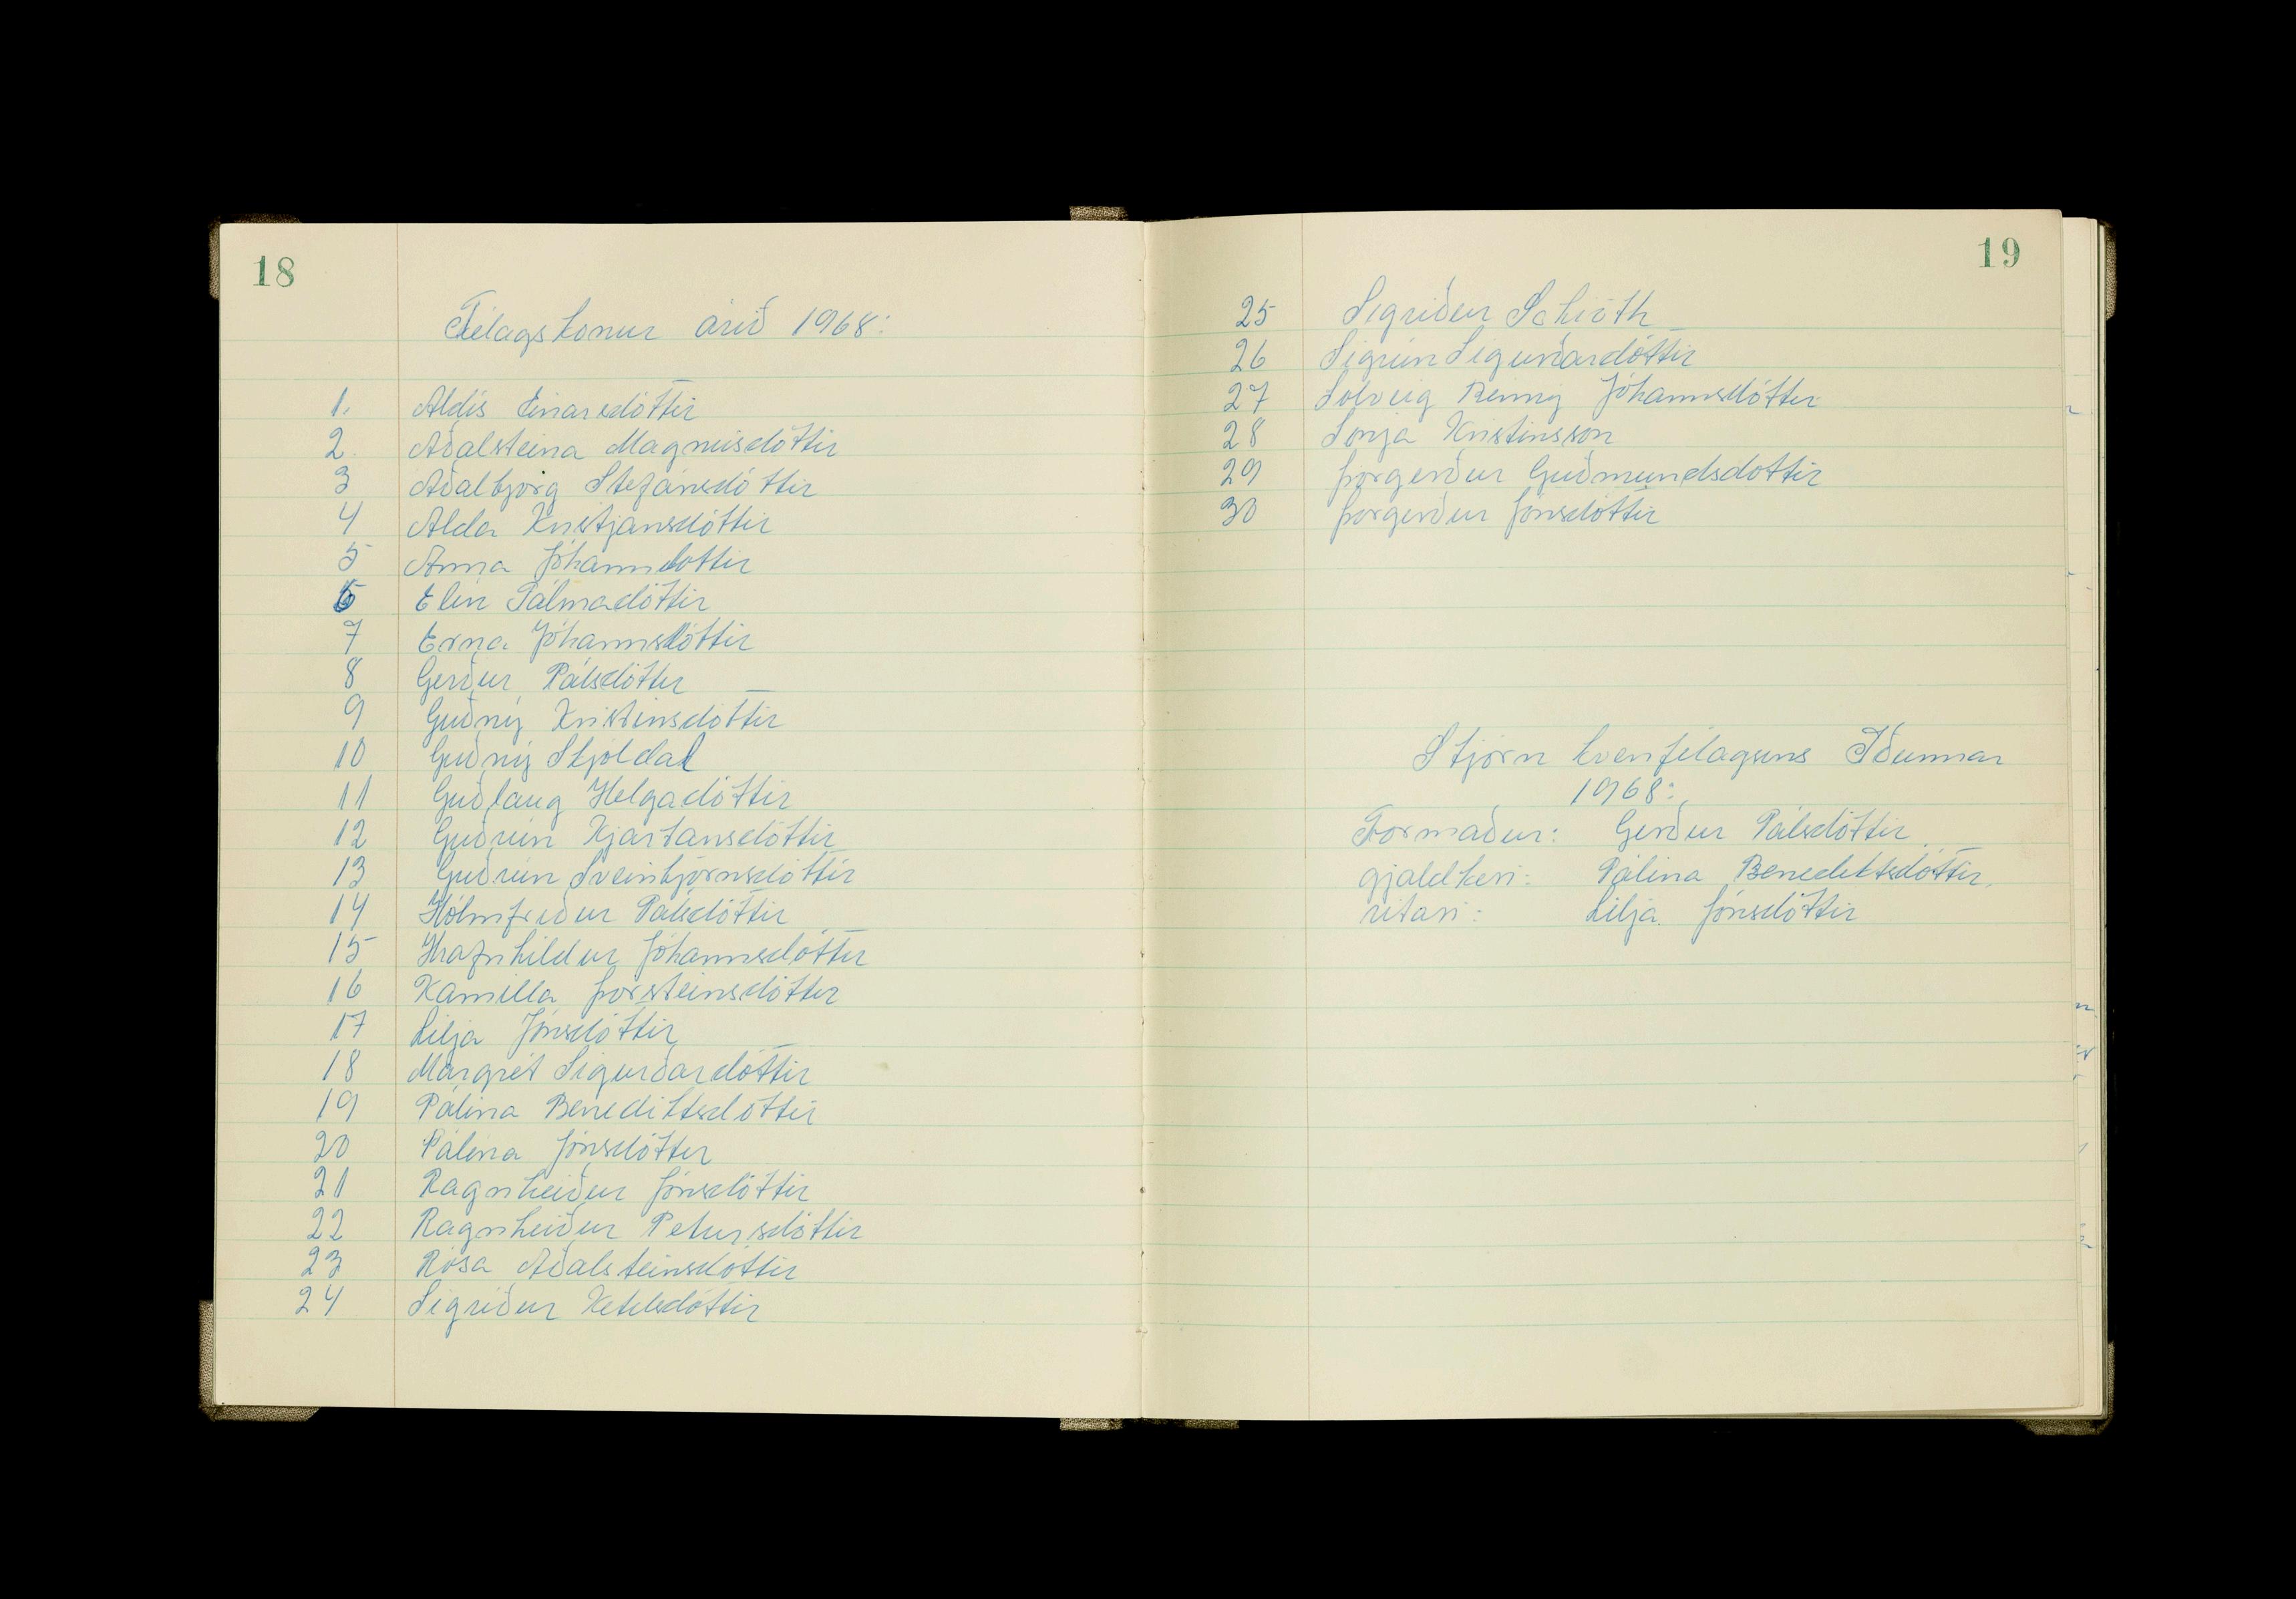 18
Félagskonur árið 1968:
1. Aldís Einarsdóttir
2. Aðalsteina Magnúsdóttir
3 Aðalbjörg Stefánsdóttir
4 Alda Kristjánsdóttir
5 Anna Jóhannsdóttir
6 Elín Pálmadóttir
7 Erna Jóhannsdóttir
8 Gerður Pálsdóttir
9 Guðný Kristinsdóttir
10 Guðný Skjóldal
11 Guðlaug Helgadóttir
12 Guðrún Kjartansdóttir
13 Guðrún Sveinbjörnsdóttir
14 Hólmfríður Pálsdóttir
15 Hrafnhildur Jóhannsdóttir
16 Kamilla Þorsteinsdóttir
17 Lilja Jónsdóttir
18 Margrét Sigurðardóttir
19 Pálína Benediktsdóttir
20 Pálína Jónsdóttir
21 Ragnheiður Jónsdóttir
22 Ragnheiður Pétursdóttir
23 Rósa Aðalsteinsdóttir
24 Sigríður Ketilsdóttir
19
25 Sigríður Schiöth
26 Sigrún Sigurðardóttir
27 Sólveig Jóhannsdóttir
28 Sonja Kristinsson
29 Þorgerður Guðmundsdóttir
30 Þorgerður Jónsdóttir
Stjórn kvenfélagsins Iðunnar
1968:
Formaður: Gerður Pálsdóttir
gjaldkeri: Pálína Benediktsdóttir.
ritari: Lilja Jónsdóttir